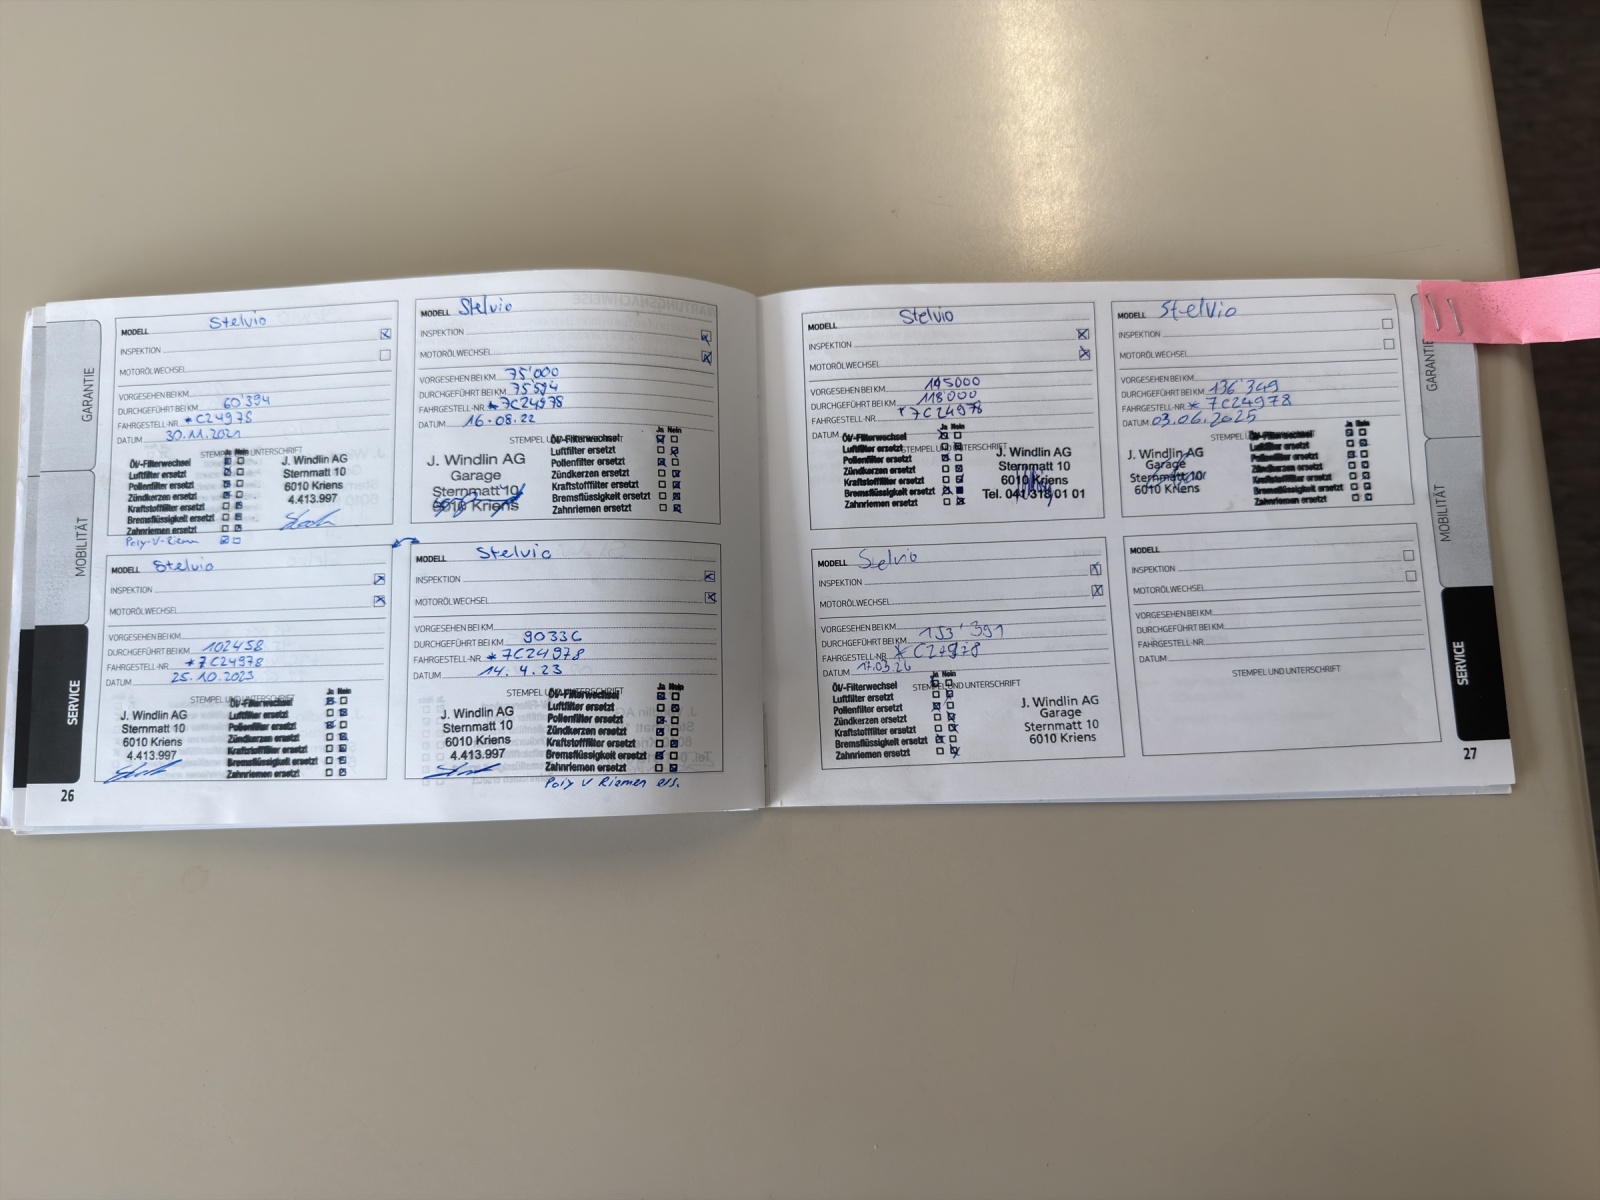 GARANTIE
MOBILITÄT
SERVICE
26
MODELL Stelvio
INSPEKTION
MOTORÖLWECHSEL
VORGESEHEN BEI KM
DURCHGEFÜHRT BEI KM 60'394
FAHRGESTELL-NR. *C24978
DATUM 30.11.2021
STEMPEL UND UNTERSCHRIFT
Ja Nein
Öl-/Filterwechsel
Luftfilter ersetzt
Pollenfilter ersetzt
Zündkerzen ersetzt
Kraftstofffilter ersetzt
Bremsflüssigkeit ersetzt
Zahnriemen ersetzt
Poly-V-Riemen
J. Windlin AG
Sternmatt 10
6010 Kriens
4.413.997
MODELL Stelvio
INSPEKTION
MOTORÖLWECHSEL
VORGESEHEN BEI KM 75'000
DURCHGEFÜHRT BEI KM 75'594
FAHRGESTELL-NR. *7C24978
DATUM 16.08.22
STEMPEL
Ja Nein
Öl-/Filterwechsel
Luftfilter ersetzt
Pollenfilter ersetzt
Zündkerzen ersetzt
Kraftstofffilter ersetzt
Bremsflüssigkeit ersetzt
Zahnriemen ersetzt
J. Windlin AG
Garage
Sternmatt 10
6010 Kriens
MODELL Stelvio
INSPEKTION
MOTORÖLWECHSEL
VORGESEHEN BEI KM
DURCHGEFÜHRT BEI KM 102458
FAHRGESTELL-NR. *7C24978
DATUM 25.10.2023
STEMPEL UND UNTERSCHRIFT
Ja Nein
Öl-/Filterwechsel
Luftfilter ersetzt
Pollenfilter ersetzt
Zündkerzen ersetzt
Kraftstofffilter ersetzt
Bremsflüssigkeit ersetzt
Zahnriemen ersetzt
J. Windlin AG
Sternmatt 10
6010 Kriens
4.413.997
MODELL Stelvio
INSPEKTION
MOTORÖLWECHSEL
VORGESEHEN BEI KM
DURCHGEFÜHRT BEI KM 90336
FAHRGESTELL-NR. *7C24978
DATUM 14.4.23
STEMPEL UND UNTERSCHRIFT
Ja Nein
Öl-/Filterwechsel
Luftfilter ersetzt
Pollenfilter ersetzt
Zündkerzen ersetzt
Kraftstofffilter ersetzt
Bremsflüssigkeit ersetzt
Zahnriemen ersetzt
Poly V Riemen ers.
J. Windlin AG
Sternmatt 10
6010 Kriens
4.413.997
MODELL Stelvio
INSPEKTION
MOTORÖLWECHSEL
VORGESEHEN BEI KM
DURCHGEFÜHRT BEI KM 118'000
FAHRGESTELL-NR. *7C24978
DATUM
STEMPEL UND UNTERSCHRIFT
Ja Nein
Öl-/Filterwechsel
Luftfilter ersetzt
Pollenfilter ersetzt
Zündkerzen ersetzt
Kraftstofffilter ersetzt
Bremsflüssigkeit ersetzt
Zahnriemen ersetzt
J. Windlin AG
Sternmatt 10
6010 Kriens
Tel. 041 318 01 01
MODELL Stelvio
INSPEKTION
MOTORÖLWECHSEL
VORGESEHEN BEI KM
DURCHGEFÜHRT BEI KM 136'349
FAHRGESTELL-NR. *7C24978
DATUM 03.06.2025
STEMPEL
Ja Nein
Öl-/Filterwechsel
Luftfilter ersetzt
Pollenfilter ersetzt
Zündkerzen ersetzt
Kraftstofffilter ersetzt
Bremsflüssigkeit ersetzt
Zahnriemen ersetzt
J. Windlin AG
Garage
Sternmatt 10
6010 Kriens
MODELL Selvio
INSPEKTION
MOTORÖLWECHSEL
VORGESEHEN BEI KM
DURCHGEFÜHRT BEI KM 153'391
FAHRGESTELL-NR. *C24978
DATUM 17.03.26
STEMPEL UND UNTERSCHRIFT
Ja Nein
Öl-/Filterwechsel
Luftfilter ersetzt
Pollenfilter ersetzt
Zündkerzen ersetzt
Kraftstofffilter ersetzt
Bremsflüssigkeit ersetzt
Zahnriemen ersetzt
J. Windlin AG
Garage
Sternmatt 10
6010 Kriens
MODELL
INSPEKTION
MOTORÖLWECHSEL
VORGESEHEN BEI KM
DURCHGEFÜHRT BEI KM
FAHRGESTELL-NR.
DATUM
STEMPEL UND UNTERSCHRIFT
GARANTIE
MOBILITÄT
SERVICE
27